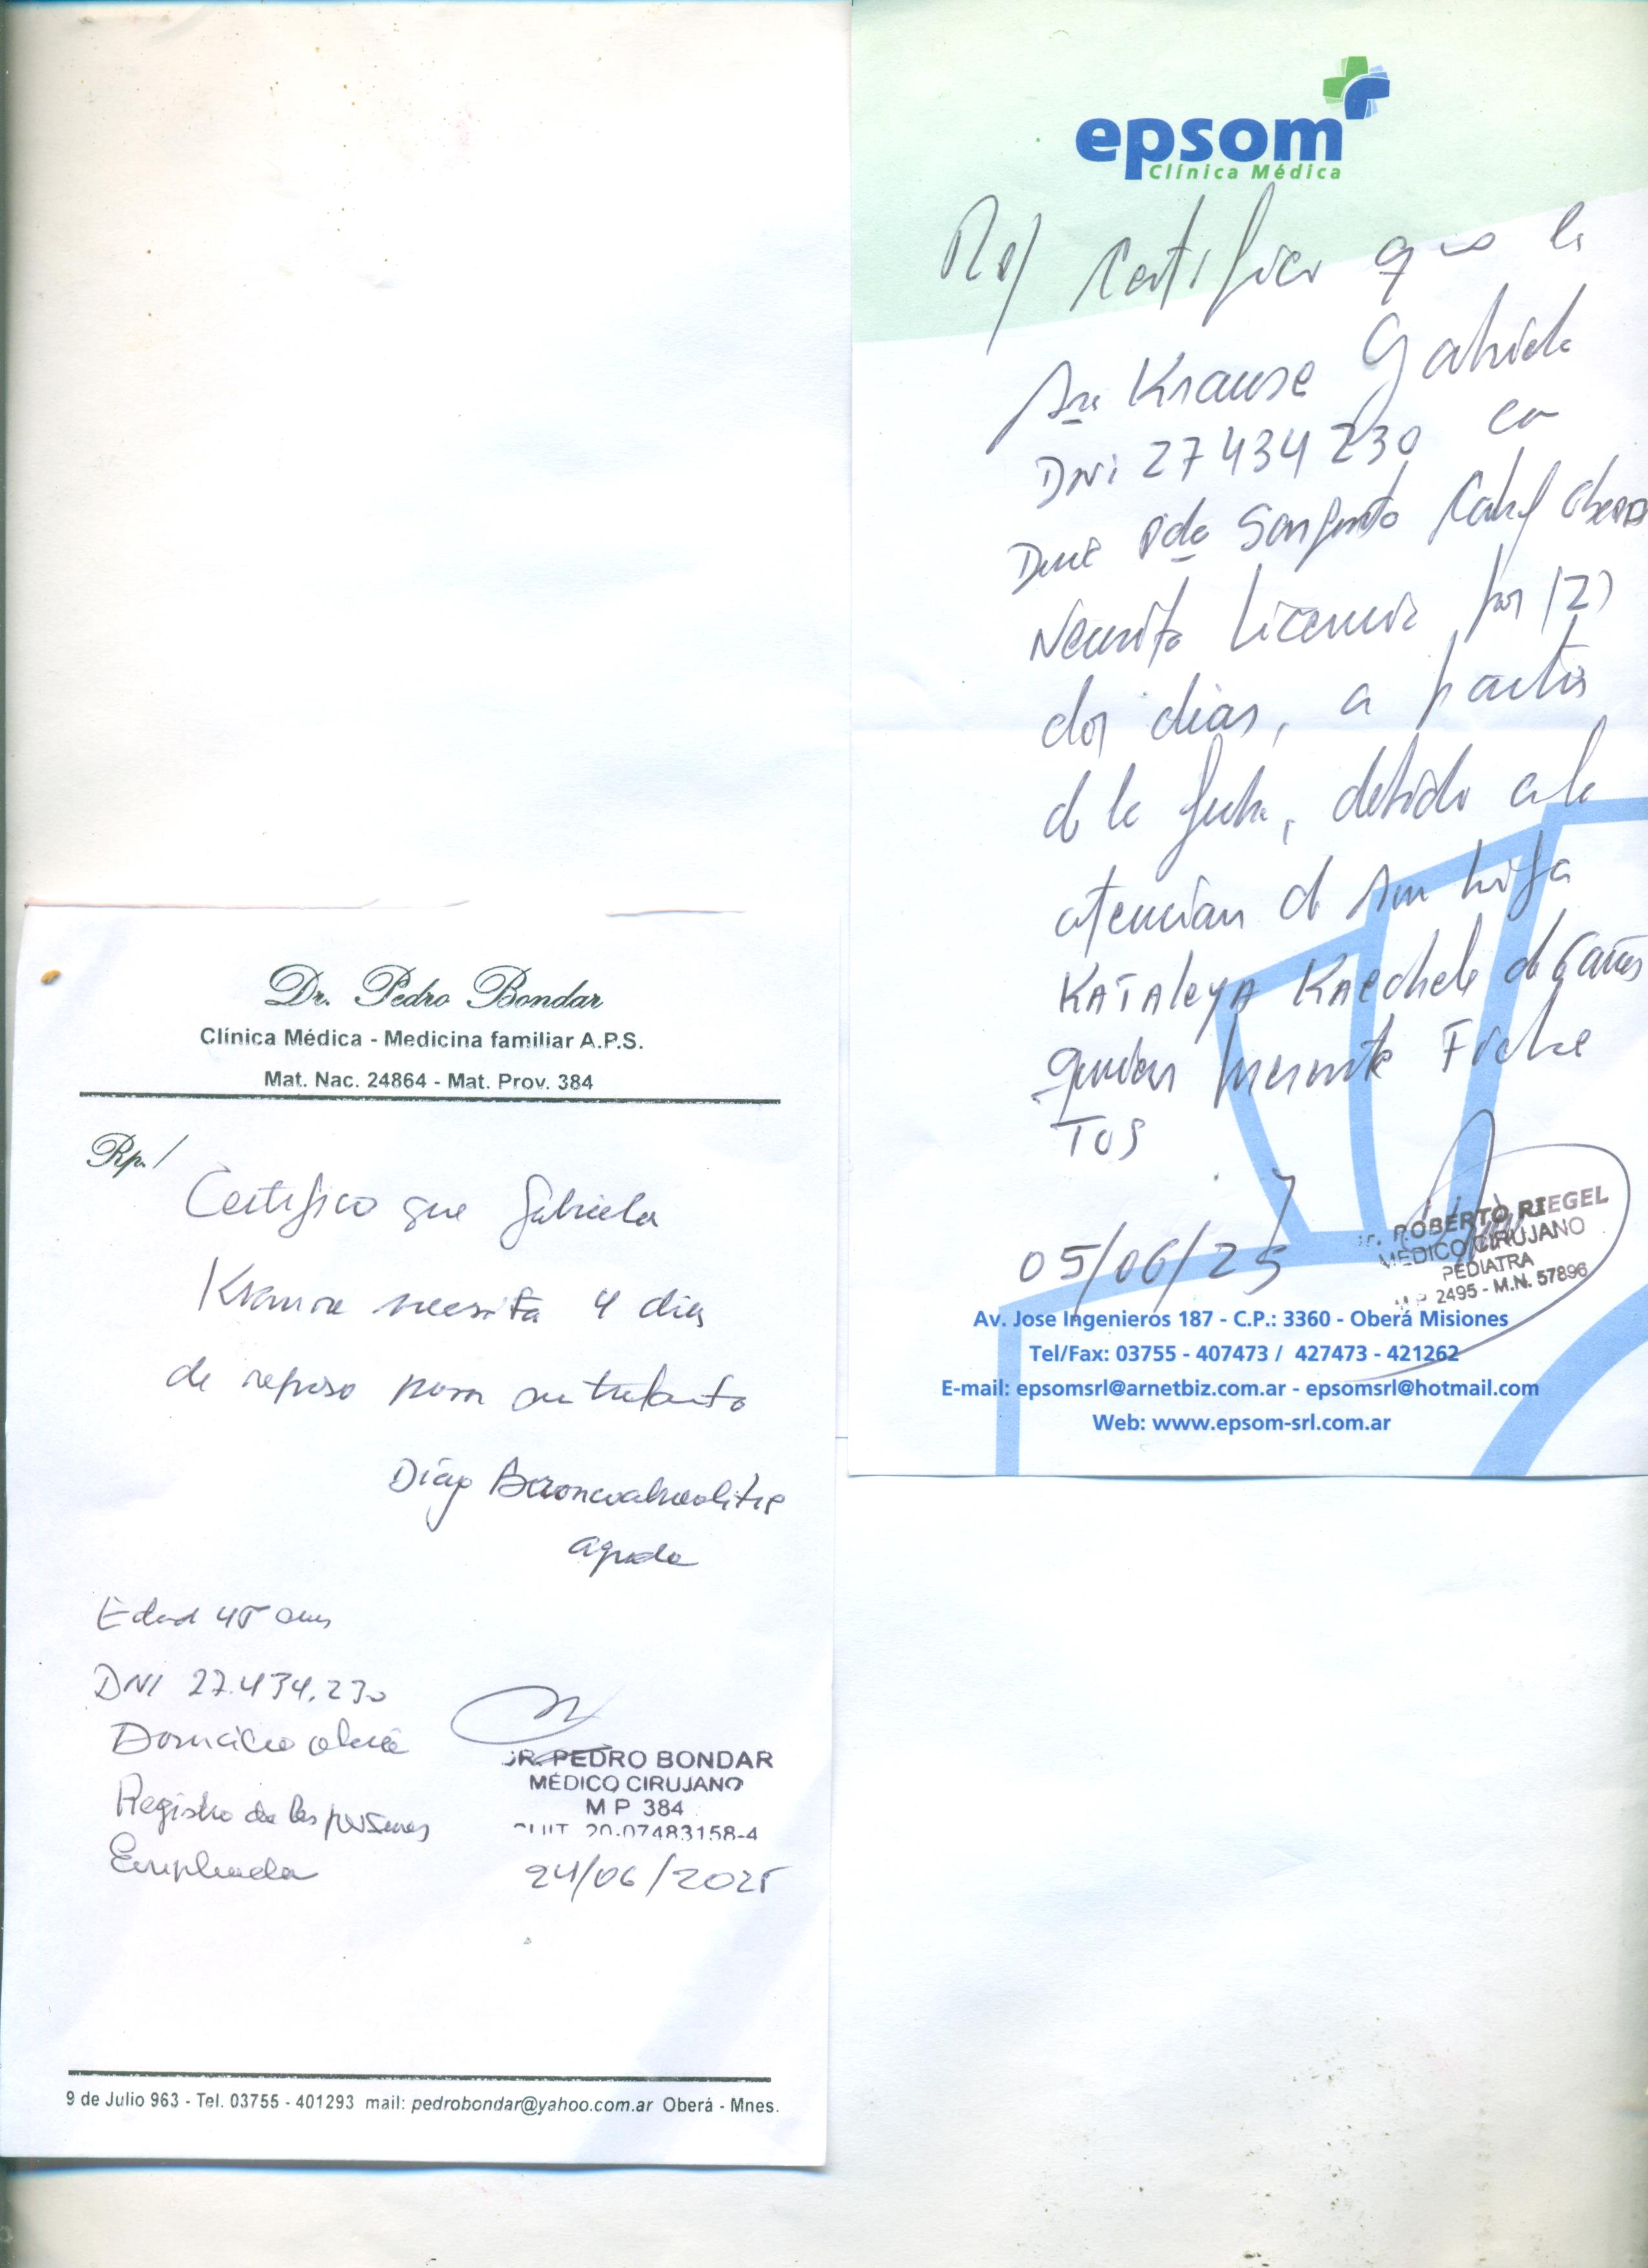 Dr. Pedro Bondar
Clínica Médica - Medicina familiar A.P.S.
Mat. Nac. 24864 - Mat. Prov. 384
Rp./
Certifico que Gabriela
Krause necesita 4 dias
de reposo para su
Diag
aguda
Edad 45 años
DNI 27.434.230
Domicilio oberá
Registro de las personas
Empleada
DR. PEDRO BONDAR
MÉDICO CIRUJANO
M P 384
CUIT 20-07483158-4
24/06/2025
9 de Julio 963 - Tel. 03755 - 401293 mail: pedrobondar@yahoo.com.ar Oberá - Mnes.
epsom
Clínica Médica
Rp/ Certifico que la
Sra Krause Gabriela
DNI 27434230 con
Sargento Cabral Oberá
Necesita Licencia por (2)
dos dias, a partir
de la fecha, debido a la
atencion de su hija
KATAleyA Kaechele de 6 años
quien presenta Fiebre
TOS
05/06/25
Dr. ROBERTO RIEGEL
MEDICO CIRUJANO
PEDIATRA
M.P. 2495 - M.N. 57896
Av. Jose Ingenieros 187 - C.P.: 3360 - Oberá Misiones
Tel/Fax: 03755 - 407473 / 427473 - 421262
E-mail: epsomsrl@arnetbiz.com.ar - epsomsrl@hotmail.com
Web: www.epsom-srl.com.ar